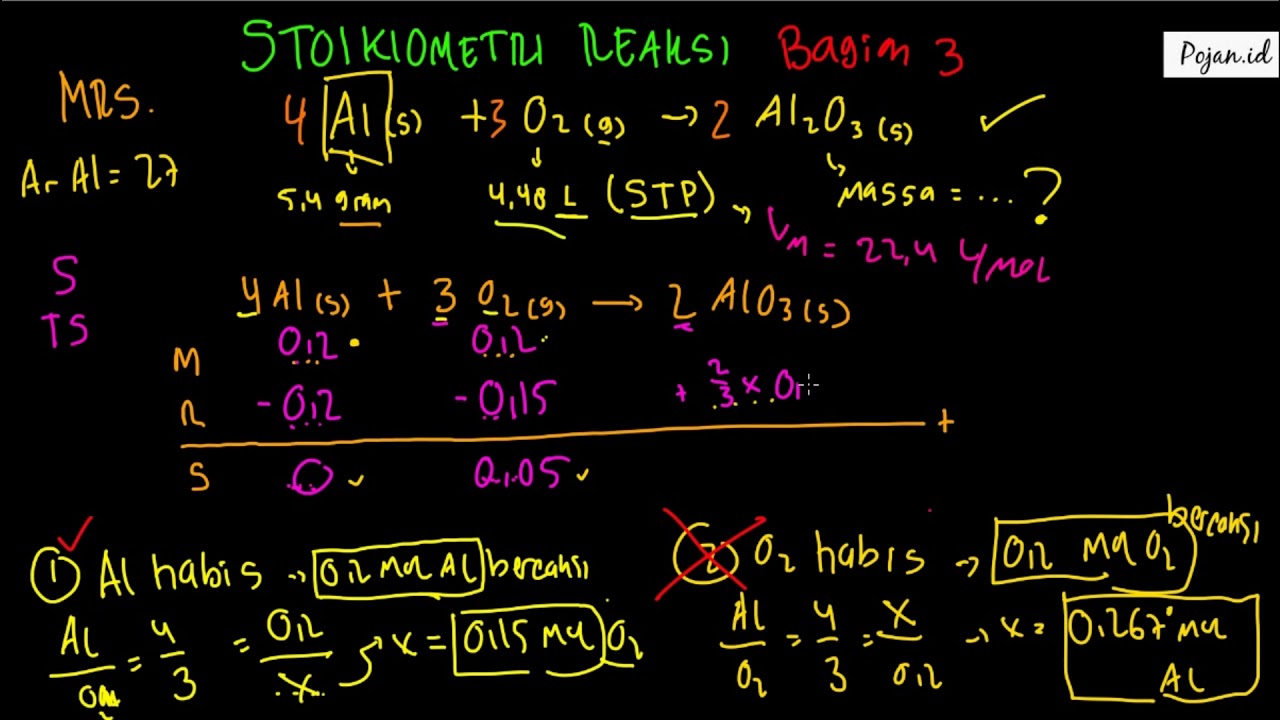 STOIKIOMETRI REAKSI Bagian 3
Pojan.id
MRS.
4 Al(s) + 3 O2(g) → 2 Al2O3(s) ✓
Ar Al = 27
5,4 gram
4,48 L (STP) → VM = 22,4 L/mol
massa = ... ?
S
TS
4 Al(s) + 3 O2(g) → 2 AlO3(s)
M 0,2 0,2
R - 0,2 - 0,15 + 2/3 x 0,
+
S 0 ✓ 0,05 ✓
① Al habis → 0,2 mol Al bereaksi
Al/O2 = 4/3 = 0,2/x → x = 0,15 mol O2
② O2 habis → 0,2 mol O2 bereaksi
Al/O2 = 4/3 = x/0,2 → x = 0,267 mol Al